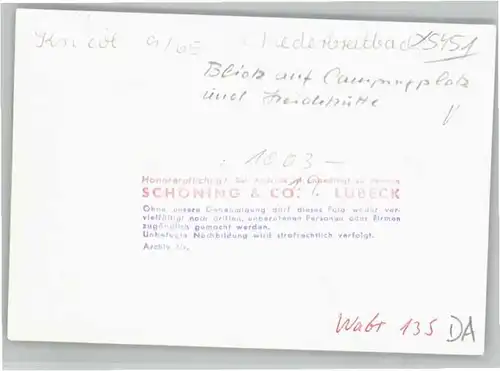 Niederbreitbach 5451
Blick auf Campingplatz
und
: 1003 -
Honorarpflichtig!
SCHÖNING & CO. LÜBECK
19
Ohne unsere Genehmigung darf dieses Foto weder ver-
vielfältigt noch dritten, unberufenen Personen oder Firmen
zugänglich gemacht werden.
Unbefugte Nachbildung wird strafrechtlich verfolgt.
Archiv Nr.
Wabr 135 DA